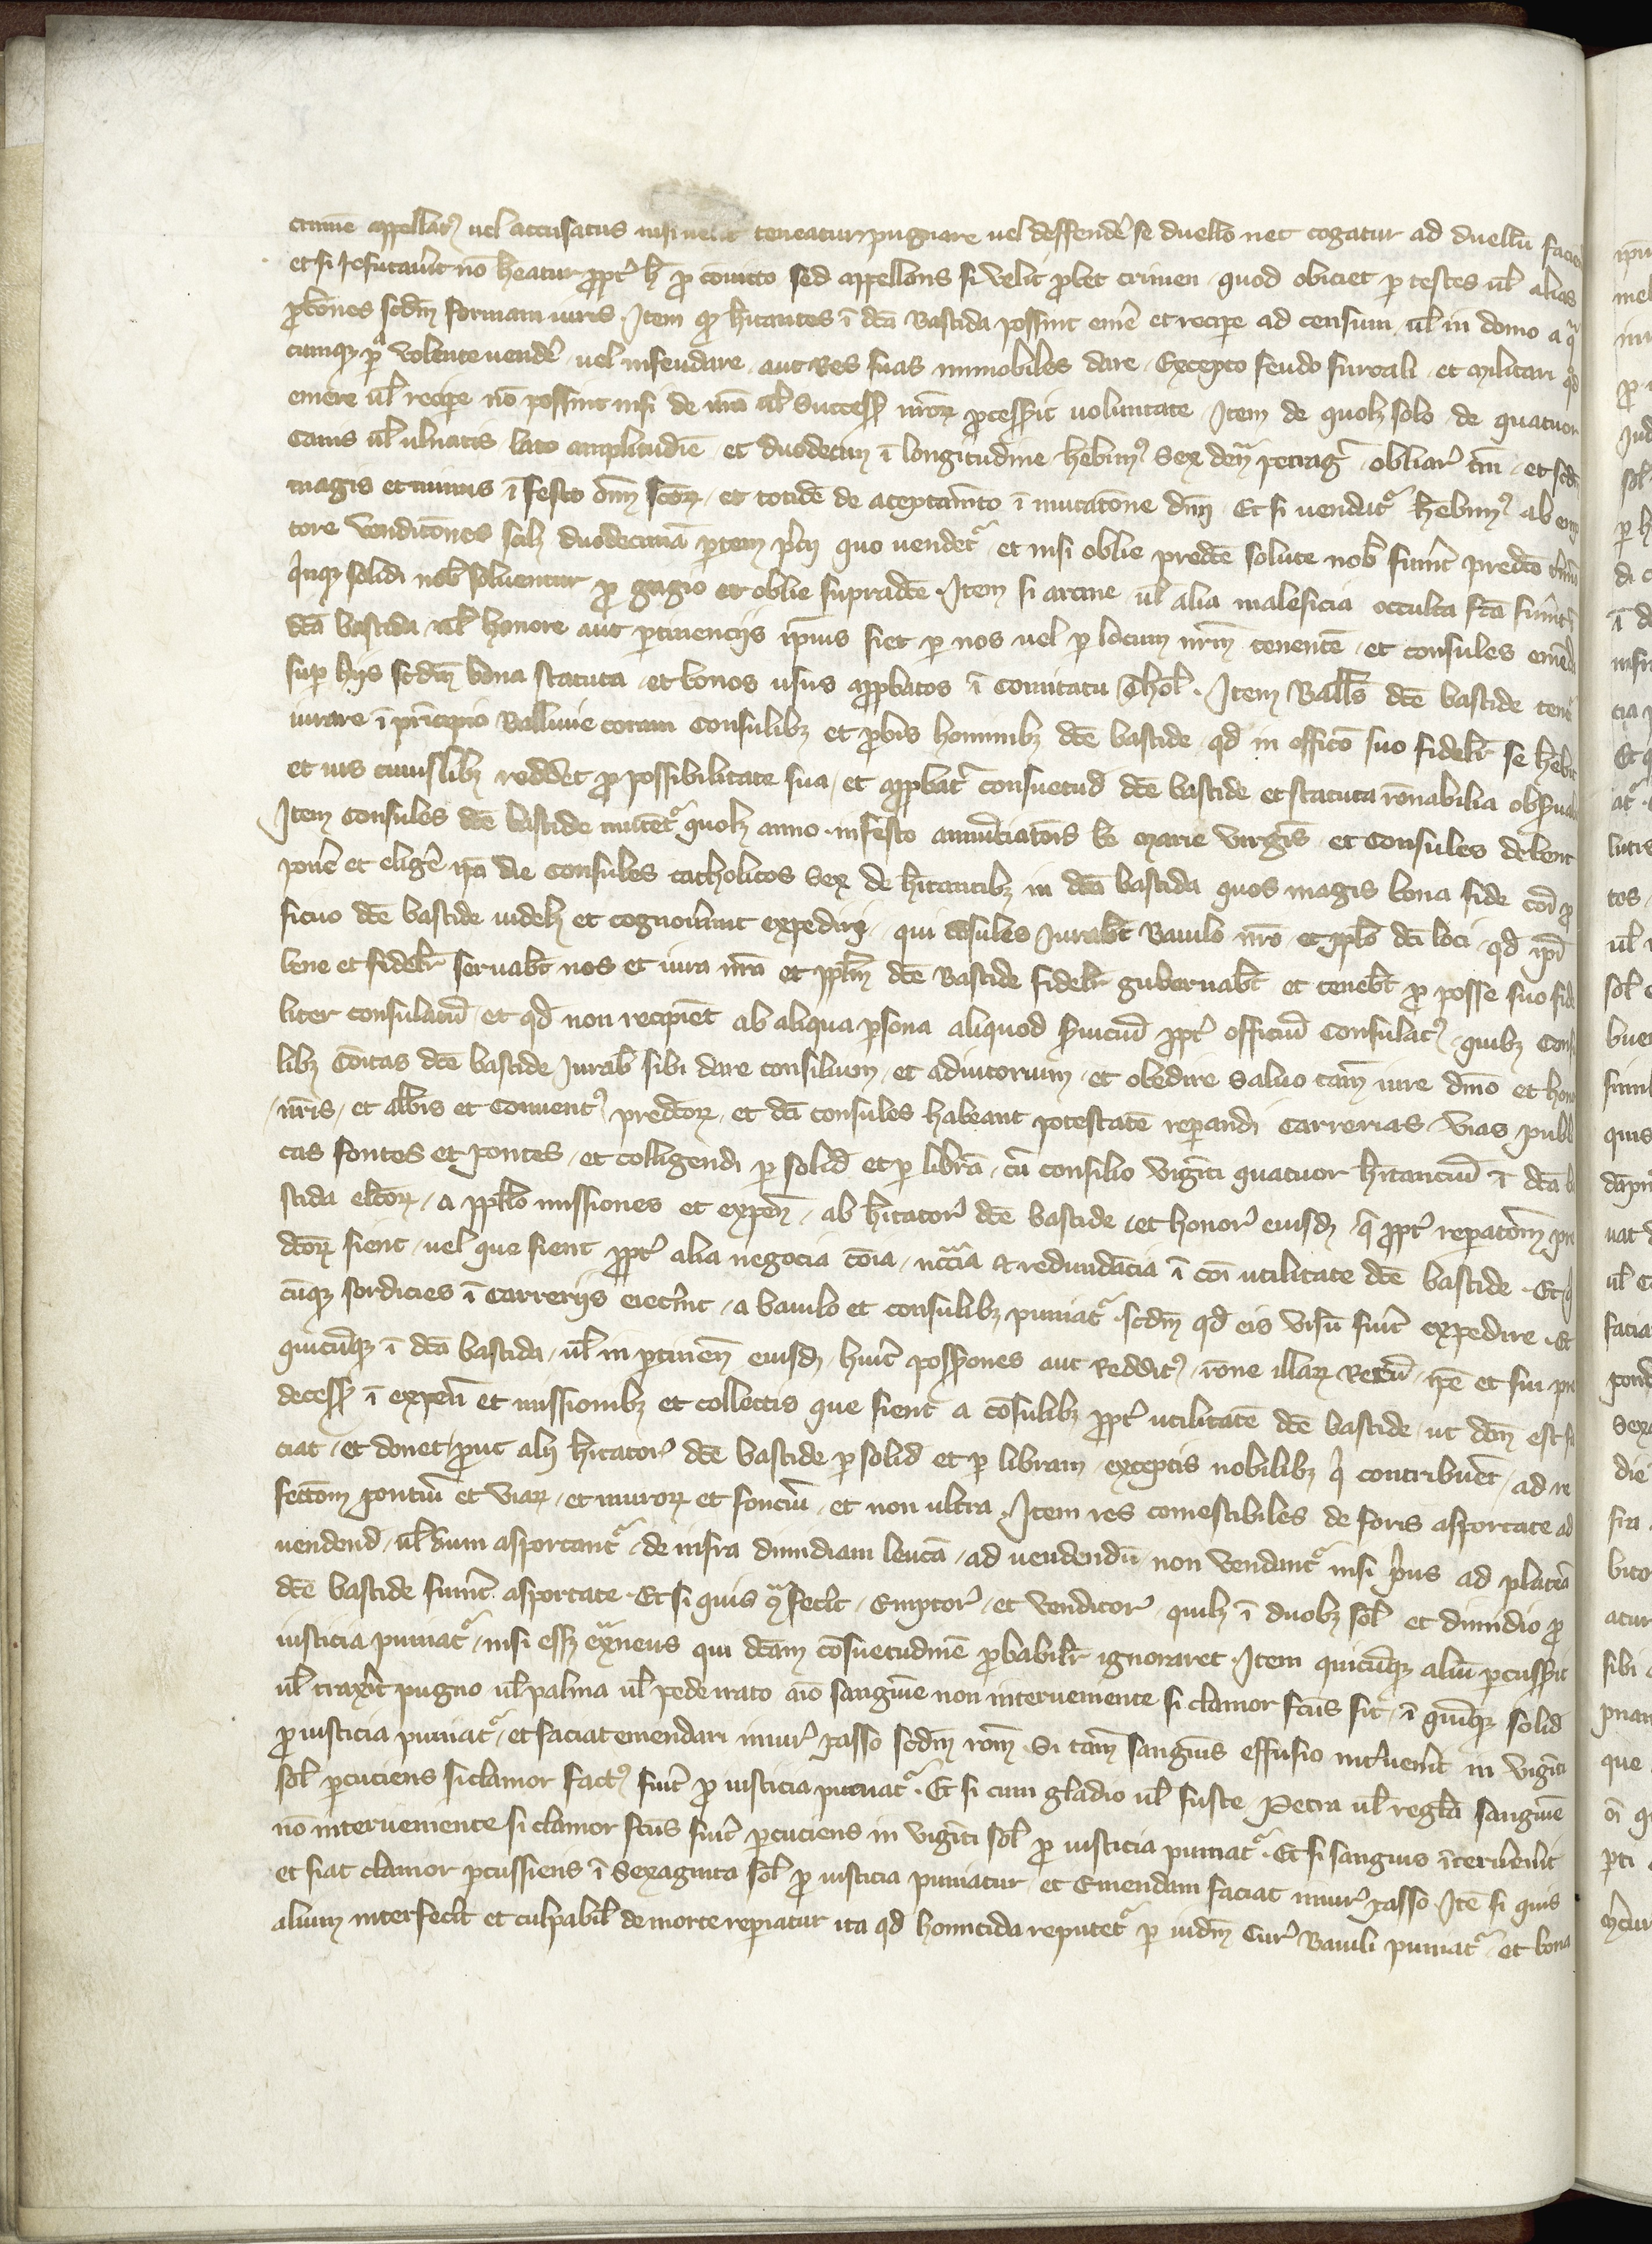 crimine appellat⁹ uel accusatus nisi uelit teneatur pugnare uel deffendẽ se duello nec cogatur ad duellũ faciẽ
et si refutauit nõ heatur ꝓpt̃ h̃ ꝓ cõuicto sed appellans si velit ꝓbet crimen quod obiciet ꝑ testes ul̃ alias
ꝓbõnes scdm̃ formam iuris. Item qd̃ hitantes ĩ dc̃a Bastida possint emẽ et recipe ad censum ul̃ in domo a
cumqꝫ ꝑ volente vendẽ uel infeudare aut Res suas immobiles dare Excepto feudo fureali et militari qd̃
emere ul̃ recipe nõ possint nisi de nr̃a ul̃ Success̃ nr̃oꝝ ꝓcess̃it uoluntate Item de quolꝫ solo de quatuor
canis ul̃ ulnatis lato amplitudĩe et duodecim ĩ longitudine hebim⁹ Sex deñ petrag̃ obliar̃ tm̃ et scd̃m
magis et minus ĩ festo om̃ scõꝝ et totidẽ de aceptamẽto ĩ mutatõne dñi Et si vendat᷑ hebim⁹ ab emp
tore venditõnes scilꝫ duodecimã ꝑtem p̃cij quo uendet᷑ et nisi oblie predc̃e solute nob̃ fuint̃ predc̃o t̃mĩo
q̃nqꝫ solidi nob̃ soluentur ꝓ gagio et oblie supradc̃e. Item si arcine ul̃ alia maleficia occulta fc̃a fuint̃ ĩ
dc̃a bastida ul̃ honore aut ꝑtinencijs ip̃ius fiet ꝑ nos uel ꝑ locum nr̃m tenentẽ et consules emẽda
suꝑ hijs scdm̃ bona statuta et bonos usus apꝓbatos ĩ comitatu Thol̃. Item Baill̃s dc̃e bastide tenet᷑
iurare ĩ principio Balliuie coram Consulibꝫ et ꝓbis hominibꝫ dc̃e bastide qd̃ in officõ suo fidelr̃ se hebit
et ius cuiuslibꝫ reddet ꝓ possibilitate sua et apꝓbat̃ consuetud̃ dc̃e bastide et statuta rõnabilia obseruab̃
Item Consules dc̃e bastide mutent᷑ quolꝫ anno in festo annũciatõis be marie virgĩs et Consules debent
ponẽ et eligẽ ip̃a die Consules catholicos Sex de hitantibꝫ in dc̃a bastida quos magis bona fide cõi ꝓ
ficuo dc̃e bastide uidelꝫ et cognouint expediri qui cõsules Jurabt̃ Bauilo nr̃o et pplõ dc̃i loci qd̃ ip̃i
bene et fidelr̃ seruabt̃ nos et iura nr̃a et pplm̃ dc̃e Bastide fidelr̃ gubernabt̃ et tenebt̃ ꝓ posse suo fide
liter consulatũ et qd̃ non recipiẽt ab aliqua ꝑsona aliquod s̃uiciũ ꝓpt̃ officiũ Consulat⁹ quibꝫ Consu
libꝫ Cõitas dc̃e bastide Jurab̃ sibi dare consilium et adiutorium et obedire saluo tam̃ iure dñio et hono
nr̃is et abb̃is et Conuent⁹ predc̃oꝝ et dc̃i consules habeant potestatẽ reꝑandi Carrerias vias publi
cas fontes et pontes et colligendi ꝑ solid̃ et ꝑ librã cũ consilio viginti quatuor hitanciũ ĩ dc̃a ba
stida elc̃oꝝ a pplõ missiones et expeñ ab hitator̃ dc̃e bastide et honor̃ eiusdꝫ q̃ ꝓpt̃ reꝑatõem pre
dc̃oꝝ fient uel que fient ꝓpt̃ alia negocia cõia ncc̃ia et redundãcia ĩ cõi utilitate dc̃e bastide. Et q̃
cũqꝫ sordicies ĩ Carrerijs eiec̃int a bauilo et consulibꝫ puniat᷑ scdm̃ qd̃ eis visũ fuit̃ expedire. Et
quicũqꝫ ĩ dc̃a bastida ul̃ in ꝑtineñ eiusdꝫ huit̃ possõnes aut reddit⁹ rõne illaꝝ Reruꝫ ip̃e et sui pre
decess̃ ĩ expeñ et missionibꝫ et collectis que fient a cõsulibꝫ ꝓpt̃ utilitatẽ dc̃e bastide ut dc̃m est fa
ciat et donet ꝓut alij hitator̃ dc̃e bastide ꝑ solid̃ et ꝑ libram exceptis nobilibꝫ q̃ contribuẽt ad re
fectõm pontiũ et viaꝝ et muroꝝ et fonciũ et non ultra. Item res comestibiles de foris asportate ad
uendend̃ ul̃ dum asportant᷑ de infra dimidiam leucã ad uendendũ non vendant᷑ nisi p̃us ad plateã
dc̃e bastide fuint̃ asportate. Et si quis ꝯ̃ fec̃it Emptor̃ et venditor̃ quilꝫ ĩ duobꝫ sol̃ et dimidio ꝓ
iusticia puniat᷑ nisi essꝫ ex̃neus qui dc̃am cõsuetudinẽ ꝓbabilr̃ ignoraret. Item quicũqꝫ aliũ ꝑcuss̃it
ul̃ traxit̃ pugno ul̃ palma ul̃ pede irato aĩo sanguĩe non interueniente si clamor fc̃us sit ĩ quĩqꝫ solid̃
ꝓ iusticia puniat᷑ et faciat emendari iniur̃ passo scdm̃ rõm. Si tam̃ sanguĩs effusio int̃uenit̃ in viginti
sol̃ ꝑcuciens si clamor fact⁹ fuit̃ ꝓ iusticia puniat᷑. Et si cum gladio ul̃ fuste Petra ul̃ regl̃a sanguĩe
nõ interueniente si clamor fc̃us fuit̃ ꝑcuciens in viginti sol̃ ꝓ iusticia puniat᷑. Et si sanguis ĩteruenit̃
et fiat clamor ꝑcussiens ĩ Sexaginta sol̃ ꝓ iusticia puniatur et Emendam faciat iniur̃ passo. Itẽ si quis
alium interfec̃it et culpabil̃ de morte repiatur ita qd̃ homicida reputet᷑ ꝑ iudm̃ Cur̃ Bauili puniat᷑ et bona